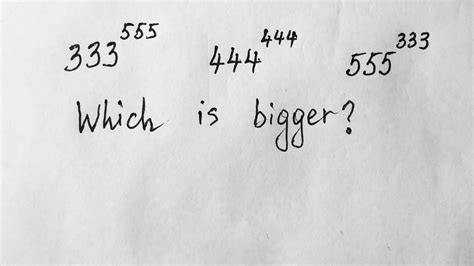 333^555 444^444 555^333
Which is bigger?